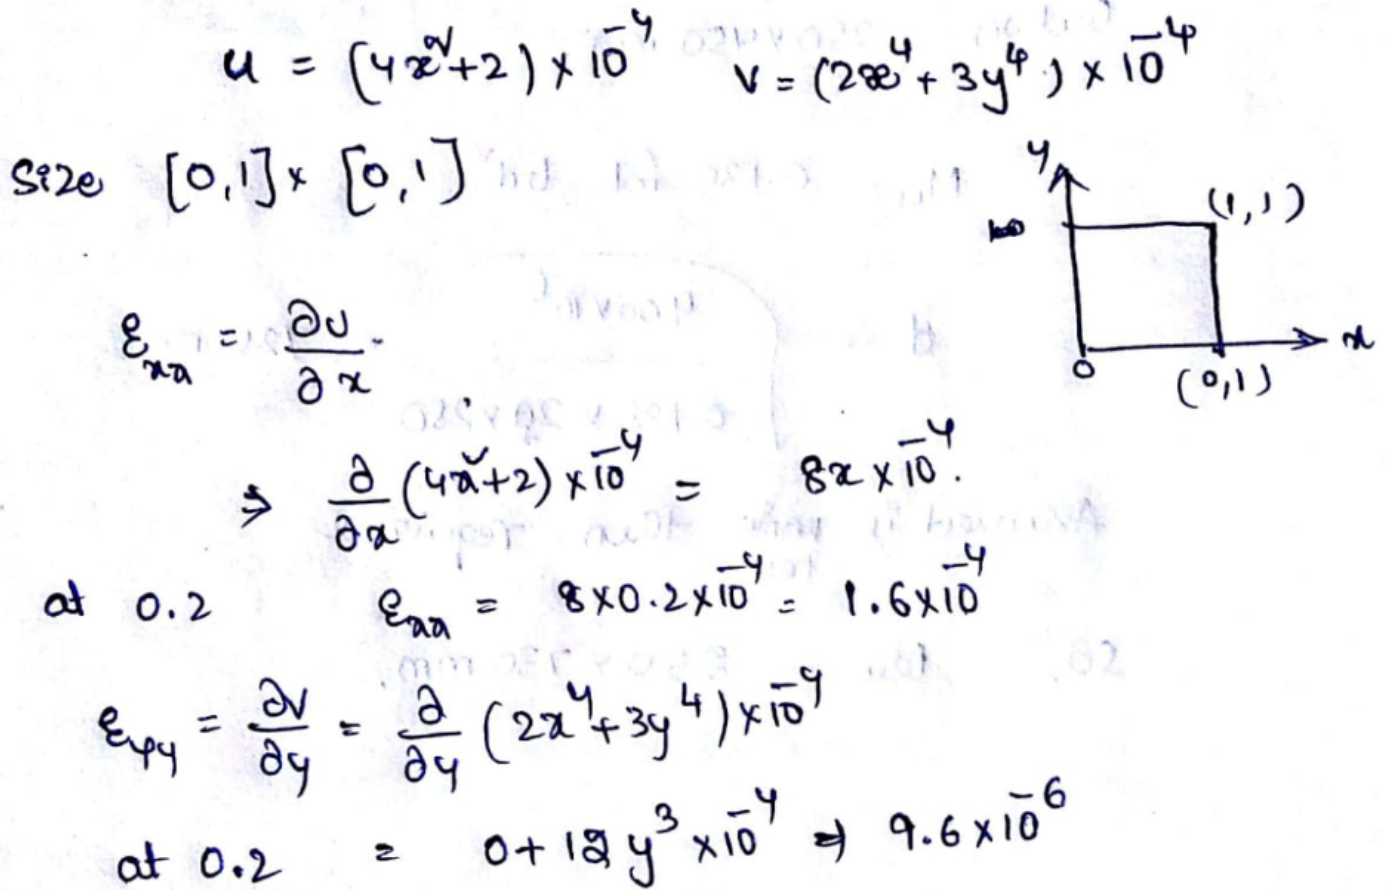 u = (4x²+2) × 10⁻⁴ v = (2x⁴ + 3y⁴) × 10⁻⁴
Size [0,1] × [0,1]
y
(1,1)
0
x
(0,1)
εxx = ∂u/∂x
⇒ ∂/∂x (4x²+2) × 10⁻⁴ = 8x × 10⁻⁴.
at 0.2 εxx = 8×0.2×10⁻⁴ = 1.6×10⁻⁴
εyy = ∂v/∂y = ∂/∂y (2x⁴+3y⁴) × 10⁻⁴
at 0.2 = 0 + 12y³ × 10⁻⁴ ⇒ 9.6×10⁻⁶